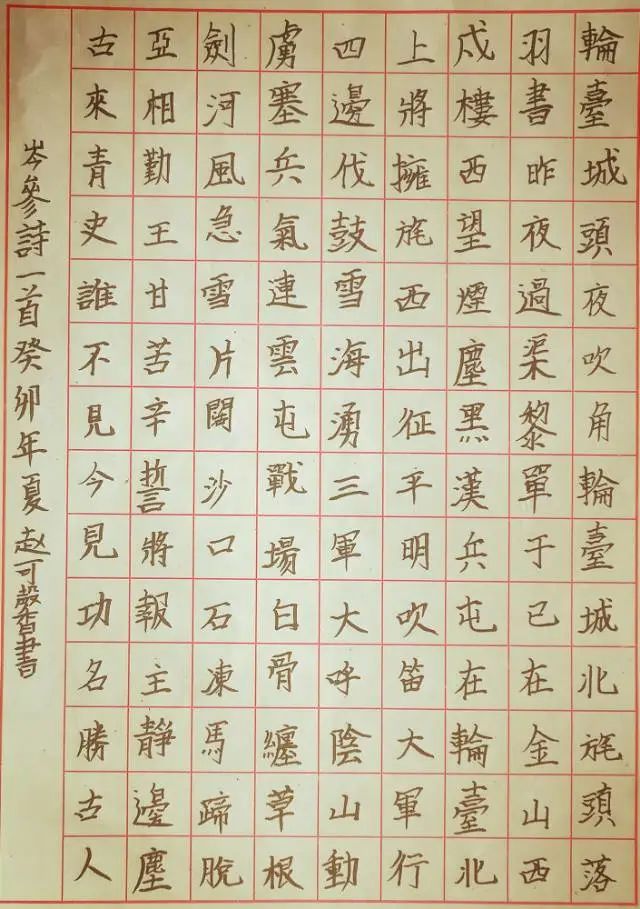 輪臺城頭夜吹角輪臺城北旄頭落
羽書昨夜過渠黎單于已在金山西
戍樓西望煙塵黑漢兵屯在輪臺北
上將擁旄西出征平明吹笛大軍行
四邊伐鼓雪海湧三軍大呼陰山動
虜塞兵氣連雲屯戰場白骨纏草根
劍河風急雪片闊沙口石凍馬蹄脫
亞相勤王甘苦辛誓將報主靜邊塵
古來青史誰不見今見功名勝古人
岑參詩一首癸卯年夏赵可馨書